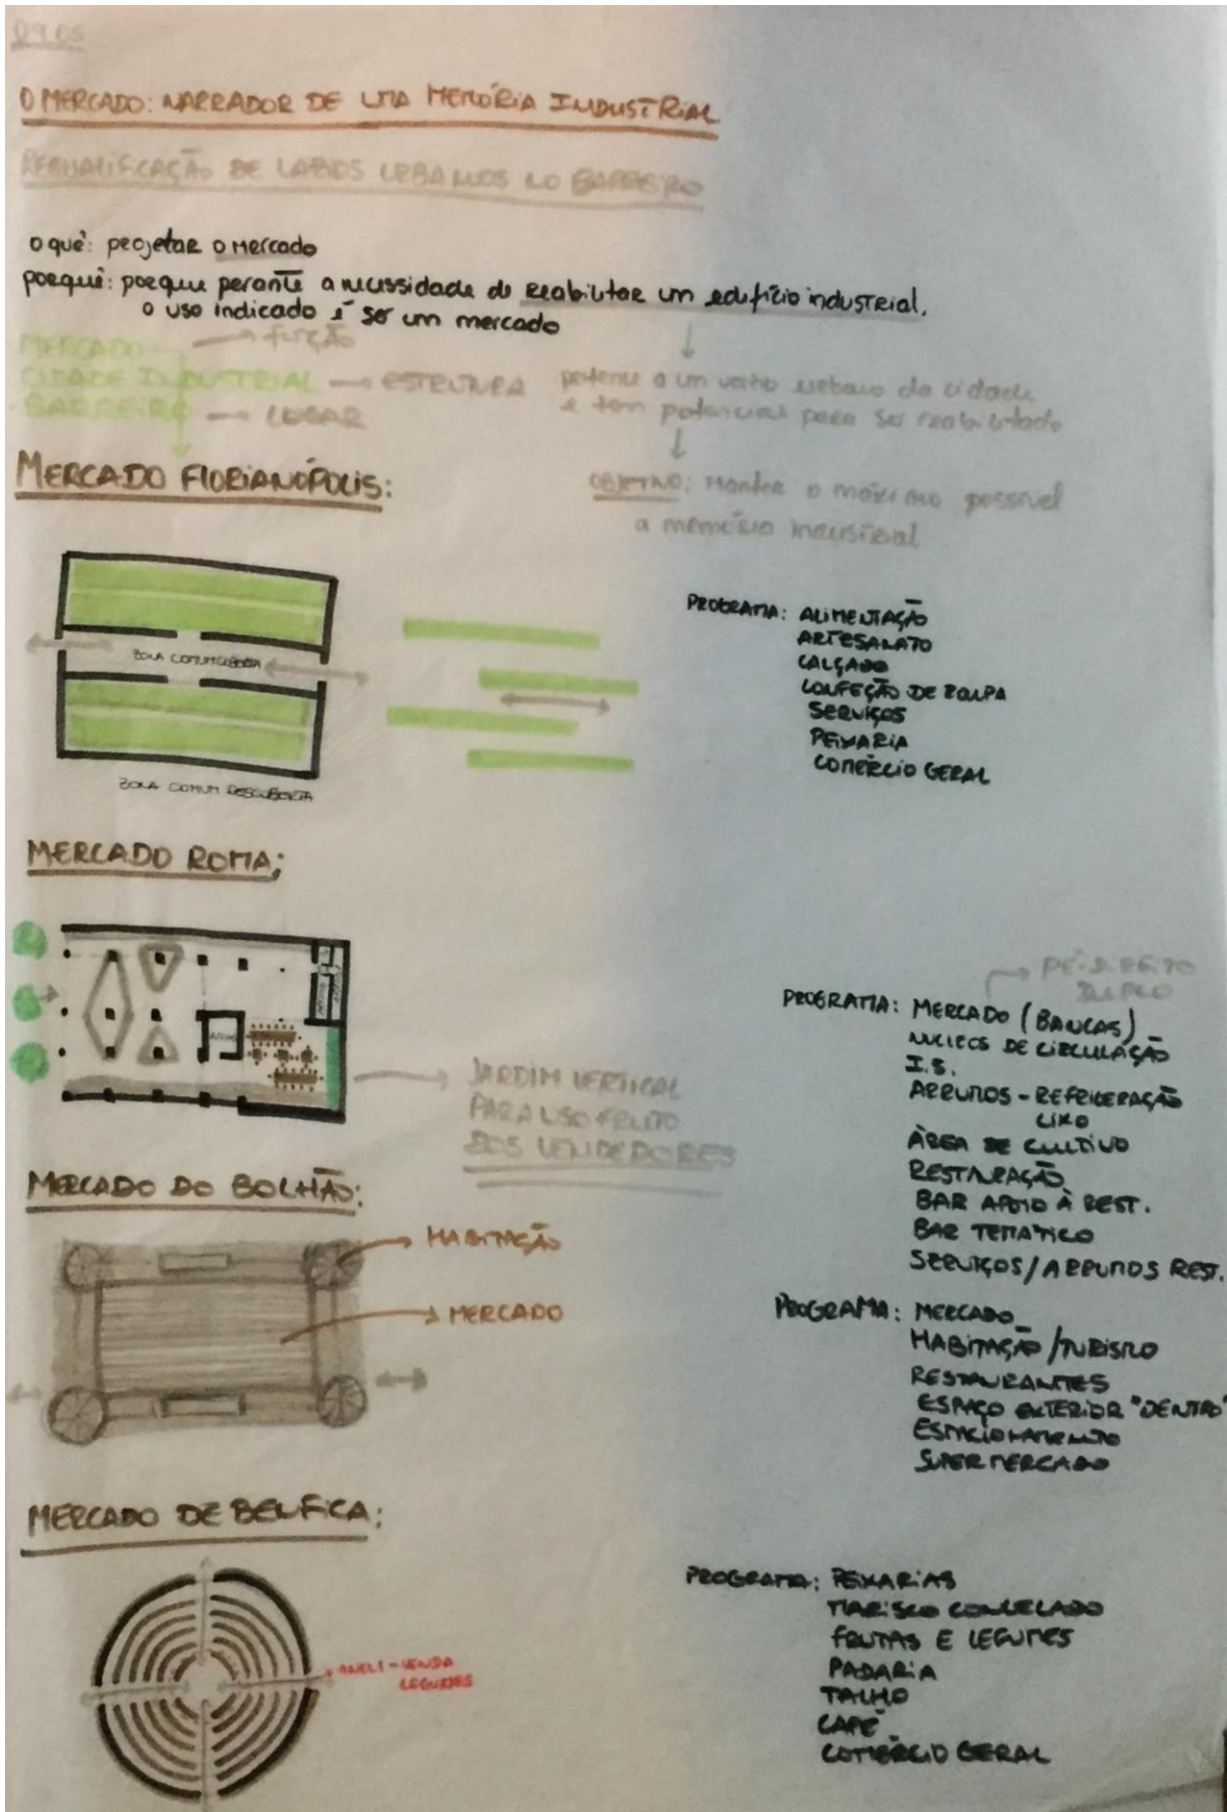 09.05
O MERCADO: NARRADOR DE UMA MEMÓRIA INDUSTRIAL
REQUALIFICAÇÃO DE VAZIOS URBANOS NO BARREIRO
o quê: projetar o mercado
porquê: porque perante a necessidade de reabilitar um edifício industrial,
o uso indicado é ser um mercado
MERCADO → FUNÇÃO
CIDADE INDUSTRIAL → ESTRUTURA
BARREIRO → LUGAR
pertence a um vazio urbano da cidade
e tem potencial para ser reabilitado
OBJETIVO: Manter o máximo possível
a memória industrial
MERCADO FLORIANÓPOLIS:
ZONA COMUM COBERTA
ZONA COMUM DESCOBERTA
PROGRAMA: ALIMENTAÇÃO
ARTESANATO
CALÇADO
CONFEÇÃO DE ROUPA
SERVIÇOS
PEIXARIA
COMÉRCIO GERAL
MERCADO ROMA:
JARDIM VERTICAL
PARA USO FRUTO
DOS VENDEDORES
PÉ-DIREITO
DUPLO
PROGRAMA: MERCADO (BANCAS)
NUCLEOS DE CIRCULAÇÃO
I.S.
ARRUMOS - REFRIGERAÇÃO
LIXO
ÀREA DE CULTIVO
RESTAURAÇÃO
BAR APOIO À REST.
BAR TEMATICO
SERVIÇOS/ARRUMOS REST.
MERCADO DO BOLHÃO:
HABITAÇÃO
MERCADO
PROGRAMA: MERCADO
HABITAÇÃO/TURISMO
RESTAURANTES
ESPAÇO EXTERIOR "DENTRO"
ESTACIONAMENTO
SUPERMERCADO
MERCADO DE BENFICA:
ANEL 1 - VENDA
LEGUMES
PROGRAMA: PEIXARIAS
MARISCO CONGELADO
FRUTAS E LEGUMES
PADARIA
TALHO
CAFÉ
COMÉRCIO GERAL